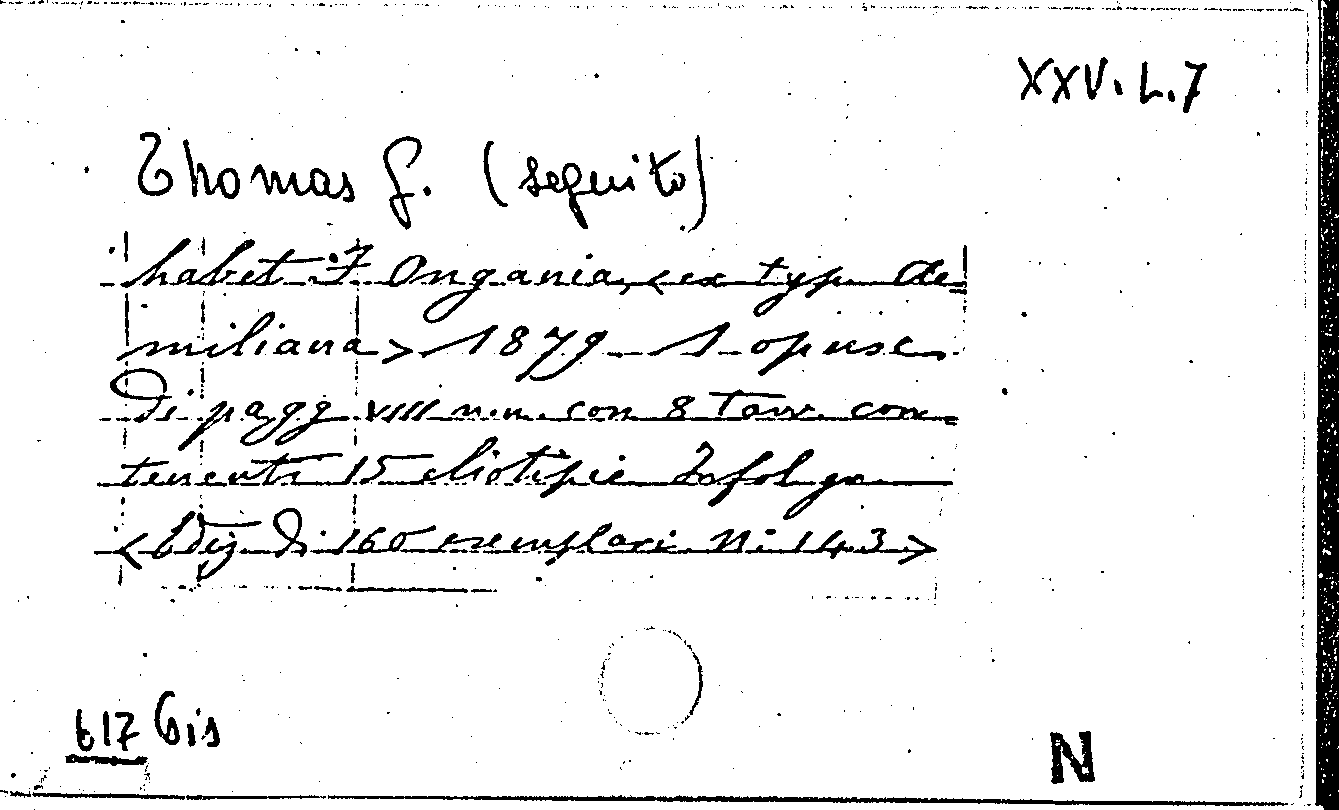 XXV. L. 7
Thomas G. (seguito)
habet F. Ongania, <ex typ. Ae=
miliana> 1879 1 opusc.
di pagg. VIII n.n. con 8 Tavv. con=
tenenti 15 eliotipie In fol gr.
<Ediz. di 160 esemplari N: 143>
617 bis
N